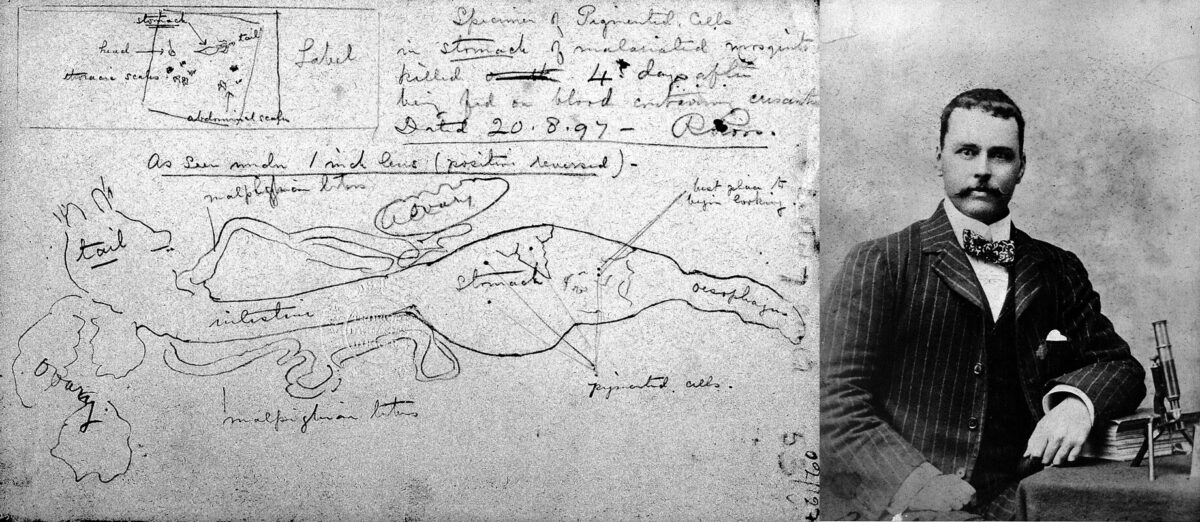 stomach
tail
head
thoracic scales
abdominal scales
Label
Specimen of Pigmented Cells
in stomach of malariated mosquito
killed 4 days after
being fed on blood containing
Dated 20.8.97 – R. Ross.
As seen under 1 inch lens (position reversed) –
malpighian
ovary
best place to
begin looking.
tail
stomach
oesophagus
intestine
ovary
pigmented cells.
malpighian